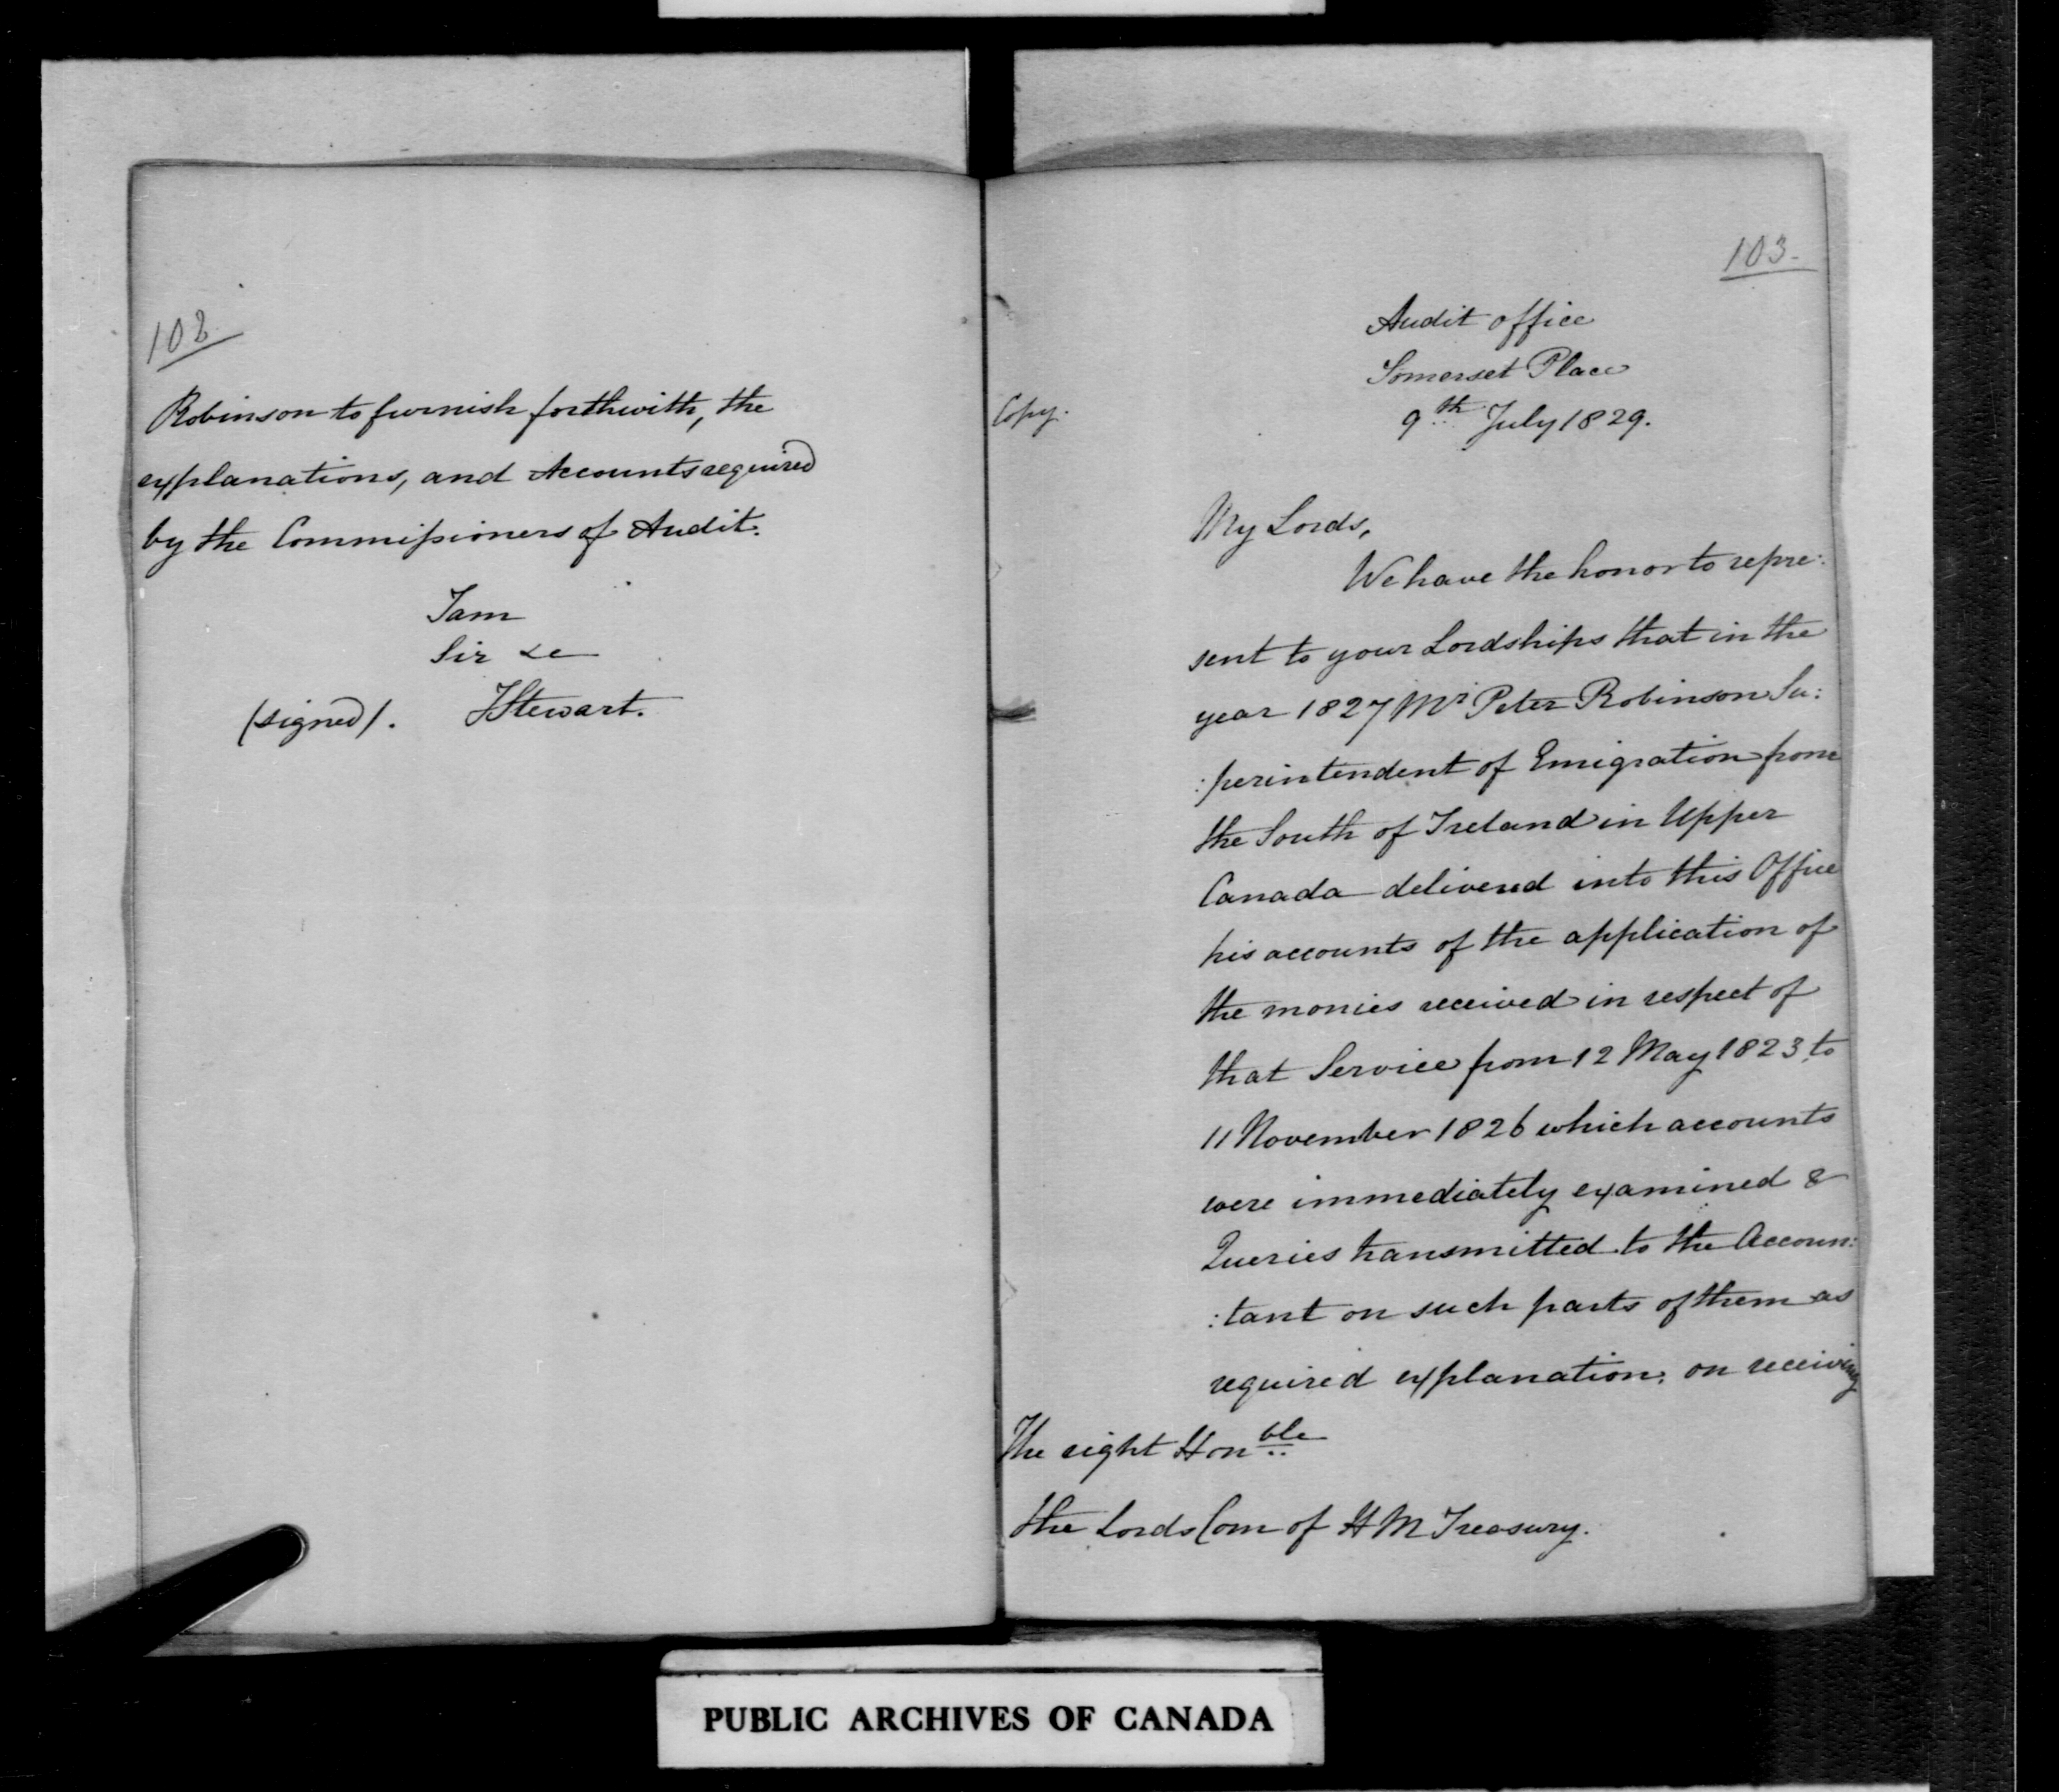 102
Robinson to furnish forthwith, the
explanations, and Accounts required
by the Commissioners of Audit.
I am
Sir &c
(signed). J Stewart.
103.
Audit office
Somerset Place
Copy.
9th July 1829.
My Lords,
We have the honor to repre:
sent to your Lordships that in the
year 1827 Mr Peter Robinson Su:
:perintendent of Emigration from
the South of Ireland in Upper
Canada delivered into this Office
his accounts of the application of
the monies received in respect of
that Service from 12 May 1823 to
11 November 1826 which accounts
were immediately examined &
Queries transmitted to the Accoun:
:tant on such parts of them as
required explanation, on receiving
The right Honble
the Lords Com of H M Treasury.
PUBLIC ARCHIVES OF CANADA